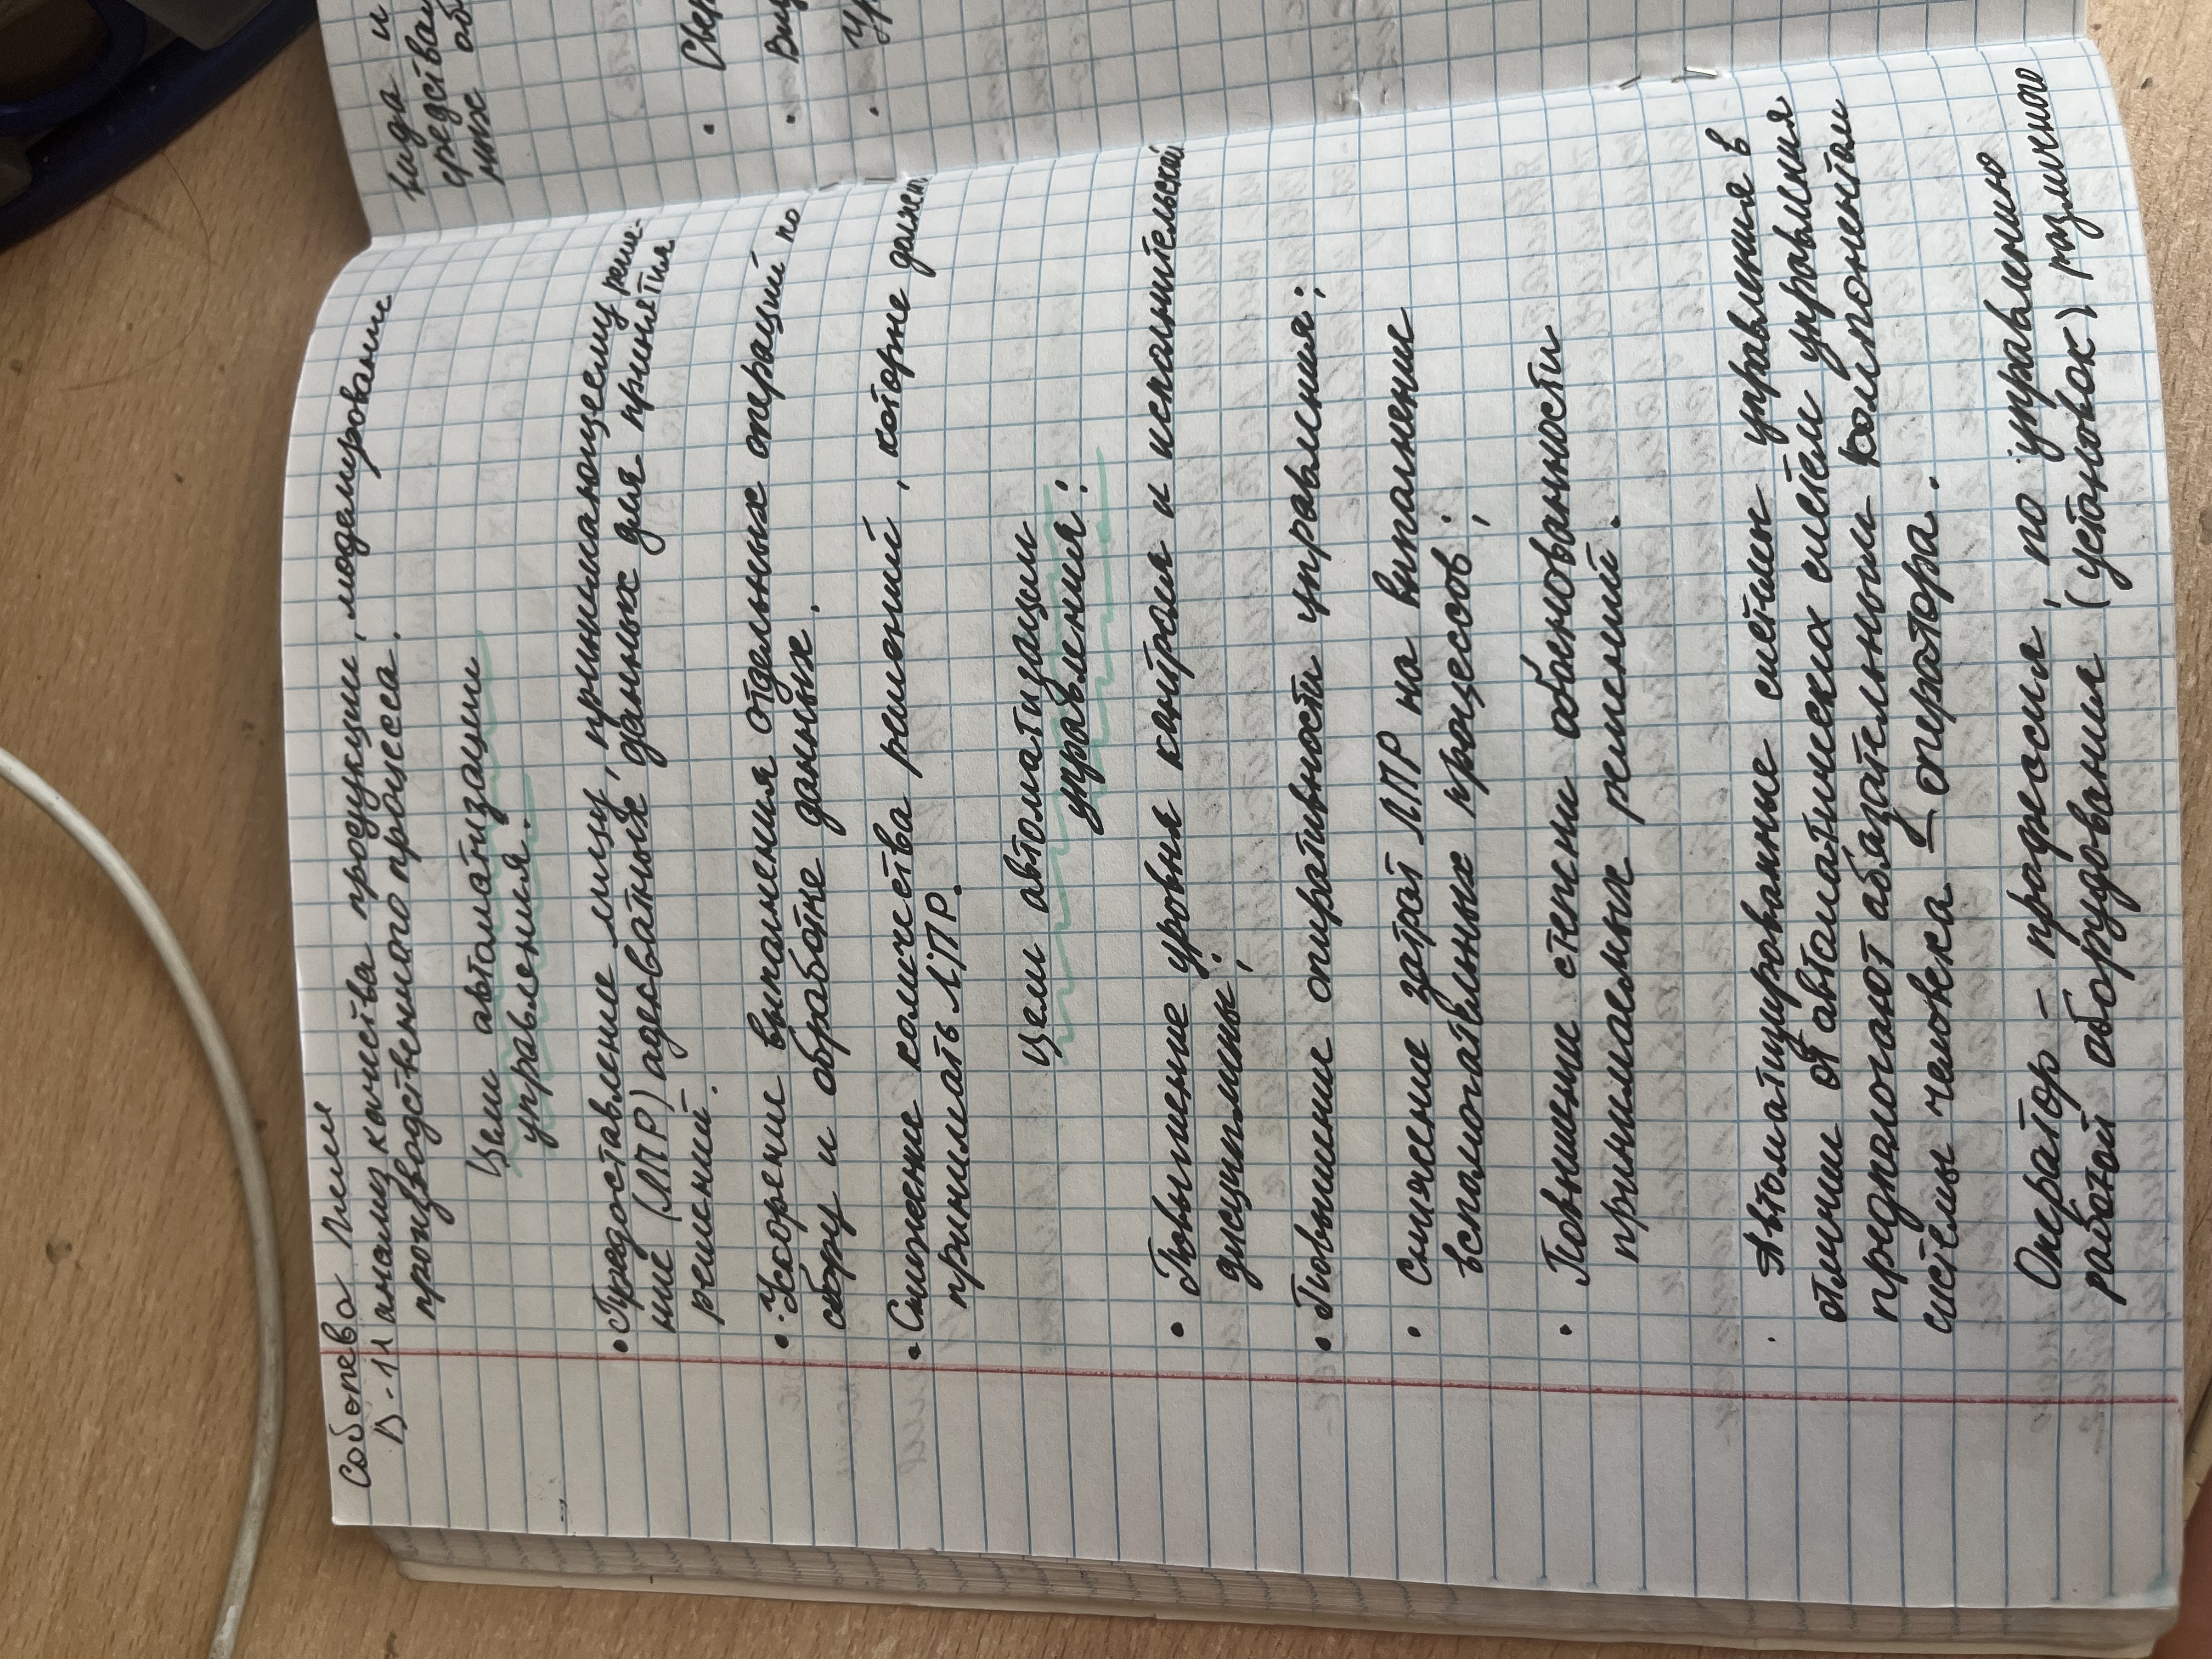 Соборева
D-11 анализ качества продукции, моделирование
производственного процесса.
Цели автоматизации
управления:
• Предоставление лицу, принимающему реше-
ние (ЛПР) адекватных данных для принятия
решений.
• Ускорение выполнения отдельных операций по
сбору и обработке данных.
• Снижение количества решений, которые должен
принимать ЛПР.
Цели автоматизации
управления:
• Повышение уровня контроля и исполнительской
дисциплины;
• Повышение оперативности управления;
• Снижение затрат ЛПР на выполнение
вспомогательных процессов;
• Повышение степени обоснованности
принимаемых решений.
Автоматизированные системы управления в
отличии от автоматических систем управления
предполагают обязательным компонентом
системы человека – оператора.
Оператор – профессия, по управлению
работой оборудования (установок) различного
вида и
средства